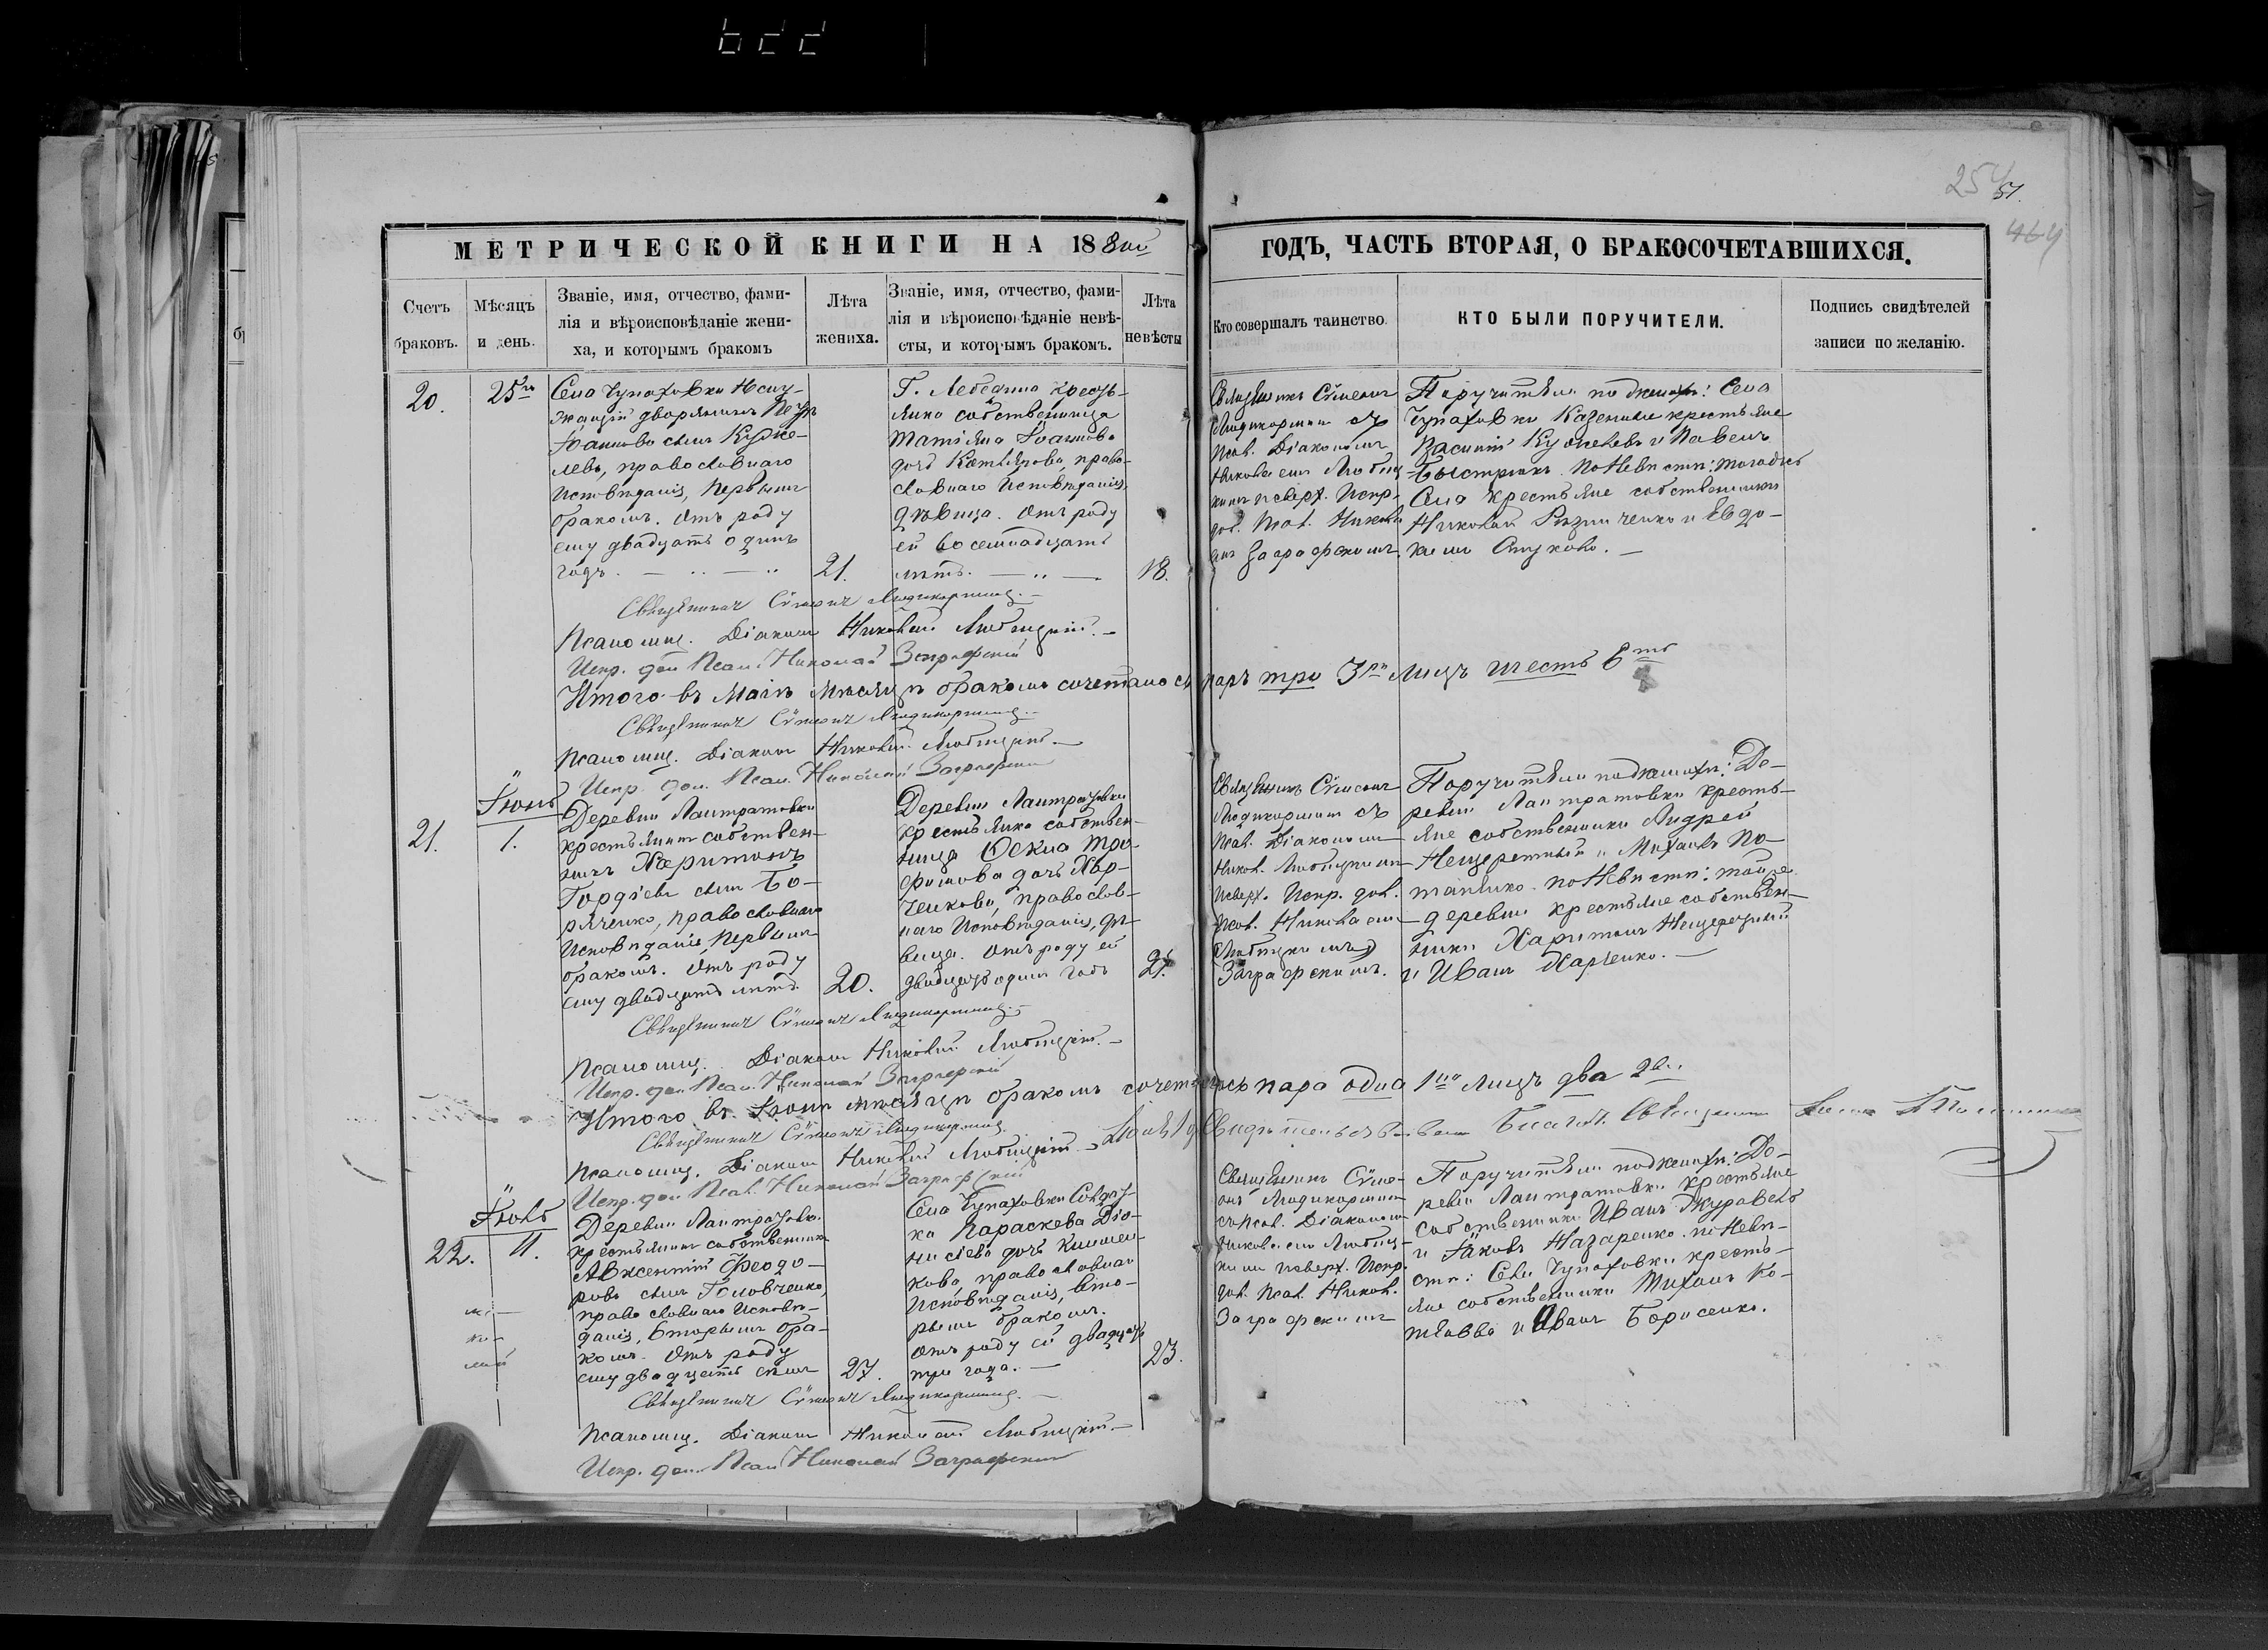 МЕТРИЧЕСКОЙ КНИГИ НА 188
ГОДЪ, ЧАСТЬ ВТОРАЯ, О БРАКОСОЧЕТАВШИХСЯ.
254
51.
464
Счетъ браковъ.
Мѣсяцъ и день.
Званіе, имя, отчество, фами-
лія и вѣроисповѣданіе жени-
ха, и которымъ бракомъ
Лѣта жениха.
Званіе, имя, отчество, фами-
лія и вѣроисповѣданіе невѣ-
сты, и которымъ бракомъ.
Лѣта невѣсты
Кто совершалъ таинство.
КТО БЫЛИ ПОРУЧИТЕЛИ.
Подпись свидѣтелей
записи по желанію.
20.
25
Села Чупаховки
дворянинъ Петръ
Іоанновъ сынъ Кудже-
левъ, православнаго
исповѣданія, первымъ
бракомъ. Отъ роду
ему двадцать одинъ
годъ.
21.
Г. Лебедина кресть-
янка собственница
Татіяна Іоаннова
дочь право-
славнаго исповѣданія,
дѣвица. Отъ роду
ей восемнадцать
лѣтъ.
18.
Священникъ Сѵмеонъ
съ
Псал. Діакономъ
Поручители по женихѣ: Села
Чупаховки казенные крестьяне
Василій и Павелъ
по невѣстѣ: тогожъ
села крестьяне собственники
Николай и Евдо-
кимъ
Священникъ Сѵмеонъ
Псаломщ. Діаконъ Николай Любицкій.
Испр. дол. Псал. Николай Заграфскій
Итого въ Маіѣ мѣсяцѣ бракомъ сочеталось паръ три 3 лицъ шесть 6
Священникъ Сѵмеонъ
Псаломщ. Діаконъ Николай Любицкій.
Испр. дол. Псал. Николай Заграфскій
Іюнь
21.
1.
Деревни Лантратовки
крестьянинъ собствен-
никъ Харитонъ
Гордіевъ сынъ Бо-
ряченко, православнаго
исповѣданія, первымъ
бракомъ. Отъ роду
ему двадцать лѣтъ.
20.
Деревни Лантратовки
крестьянка собствен-
ница Ѳекла Тро-
фимова дочь Хар-
ченкова, православ-
наго исповѣданія, дѣ-
вица. Отъ роду ей
двадцать одинъ годъ
21.
Священникъ Сѵмеонъ
съ
Псал. Діакономъ
Никол. Любицкимъ
и сверх. Испр. дол.
Псал. Николаемъ
Заграфскимъ.
Поручители по женихѣ: Де-
ревни Лантратовки кресть-
яне собственники Андрей
Нещеретный и Михаилъ По-
тапенко. по невѣстѣ: той же
деревни крестьяне собствен-
ники Харитонъ Нещеретный
и Иванъ Харченко.
Священникъ Сѵмеонъ
Псаломщ. Діаконъ Николай Любицкій.
Испр. дол. Псал. Николай Заграфскій
Итого въ Іюнѣ мѣсяцѣ бракомъ сочеталась пара одна 1 лицъ два 2
Священникъ Сѵмеонъ
Псаломщ. Діаконъ Николай Любицкій
Испр. дол. Псал. Николай Заграфскій
Іюль
22.
11.
Деревни Лантратовки
крестьянинъ собственникъ
Авксентій Ѳеодо-
ровъ сынъ Головченко,
православнаго исповѣ-
данія, вторымъ бра-
комъ. Отъ роду
ему двадцать семь
27.
Села Чупаховки Солдат-
ка Параскева Діо-
нисіева дочь Климен-
кова, православнаго
исповѣданія, вто-
рымъ бракомъ.
Отъ роду ей двадцать
три года.
23.
Священникъ Сѵме-
онъ
съ Псал. Діакономъ
Николаемъ Любиц-
кимъ и сверх. Испр.
дол. Псал. Никол.
Заграфскимъ
Поручители по женихѣ: Де-
ревни Лантратовки крестьяне
собственники Иванъ Журавель
и Іаковъ Назаренко. по невѣ-
стѣ: Села Чупаховки кресть-
яне собственники Михаилъ Ко-
и Иванъ Борисенко.
Священникъ Сѵмеонъ
Псаломщ. Діаконъ Николай Любицкій.
Испр. дол. Псал. Николай Заграфскій